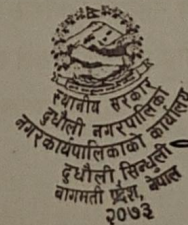 स्थानीय सरकार
दुधौली नगरपालिका
नगरकार्यपालिकाको कार्यालय
दुधौली, सिन्धुली
बागमती प्रदेश, नेपाल
२०७३